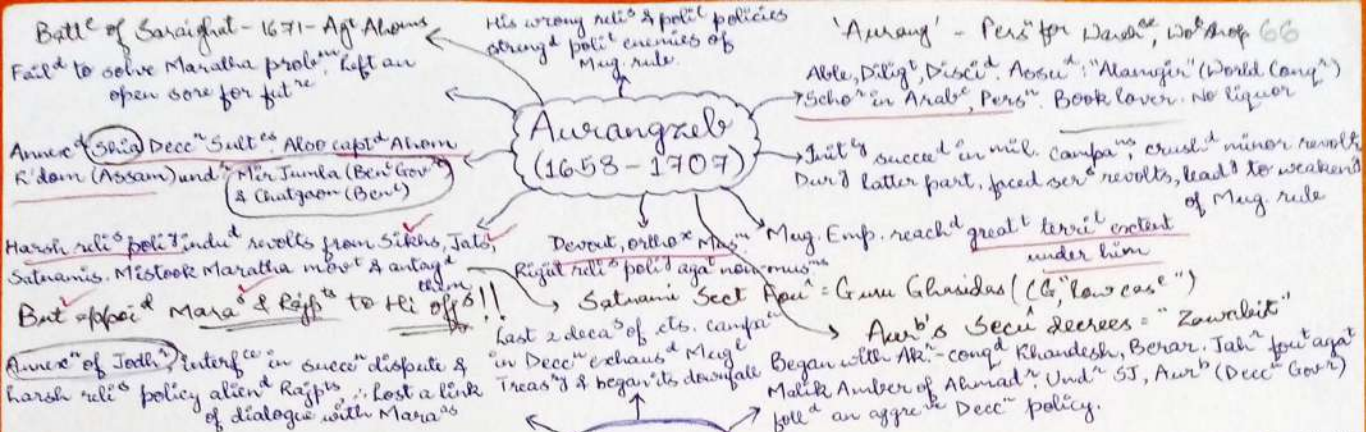 Battᶜ of Saraighat - 1671 - Agᵗ Ahoms
Failᵈ to solve Maratha probᵉᵐ. Left an
open sore for futʳᵉ
His wrong reliˢ & politᶜ policies
strengᵈ politˡ enemies of
Mug. rule
'Aurang' - Persⁿ for Warehˢᵉ, Wokshop 66
Able, Diligᵗ, Disciᵈ. Assuᵈ: "Alamgir" (World Conqʳ)
Schoʳ in Arabᶜ, Persⁿ. Book lover. No liquor
Aurangzeb
(1658 - 1707)
Annexᵈ Shia Deccⁿ Sultᵉˢ. Also captᵈ Ahom
K'dom (Assam) undʳ Mir Jumla (Benˡ Govʳ)
& Chatgaon (Benˡ)
Initˡʸ succeᵈ in mil. campaⁿˢ, crushᵈ minor revolts
Durᵍ latter part, faced serˢ revolts, leadᵍ to weakenᵍ
of Mug. rule
Harsh reliˢ poliʸ induᵈ revolts from Sikhs, Jats,
Satnamis. Mistook Maratha movᵗ & antagᵈ
them
But appoiᵈ Maraˢ & Rajpᵗˢ to Hi offˢ!!
Devout, orthoˣ Musᵐ.
Rigid reliˢ poliʸ agaᵗ non-musᵐˢ
Mug. Emp. reachᵈ greatᵗ territˡ extent
under him
Satnami Sect Fouʳ = Guru Ghasidas (CG, "low casᵉ")
Aurᵇ's Secuʳ decrees = "Zawabit"
Annexⁿ of Jodhʳ, interfᶜᵉ in succⁿ dispute &
harsh reliˢ policy alienᵈ Rajpᵗˢ ∴ Lost a link
of dialogue with Maraᵃˢ
Last 2 decaˢ of cts. campaⁿ
in Deccⁿ exhausᵈ Mugˡ
Treasʸ & began its downfall
Began with Akʳ - conqᵈ Khandesh, Berar. Jahʳ fouᵗ agaᵗ
Malik Amber of Ahmadʳ. Undʳ SJ, Aurᵇ (Deccⁿ Govʳ)
follᵈ an aggreᵛᵉ Deccⁿ policy.